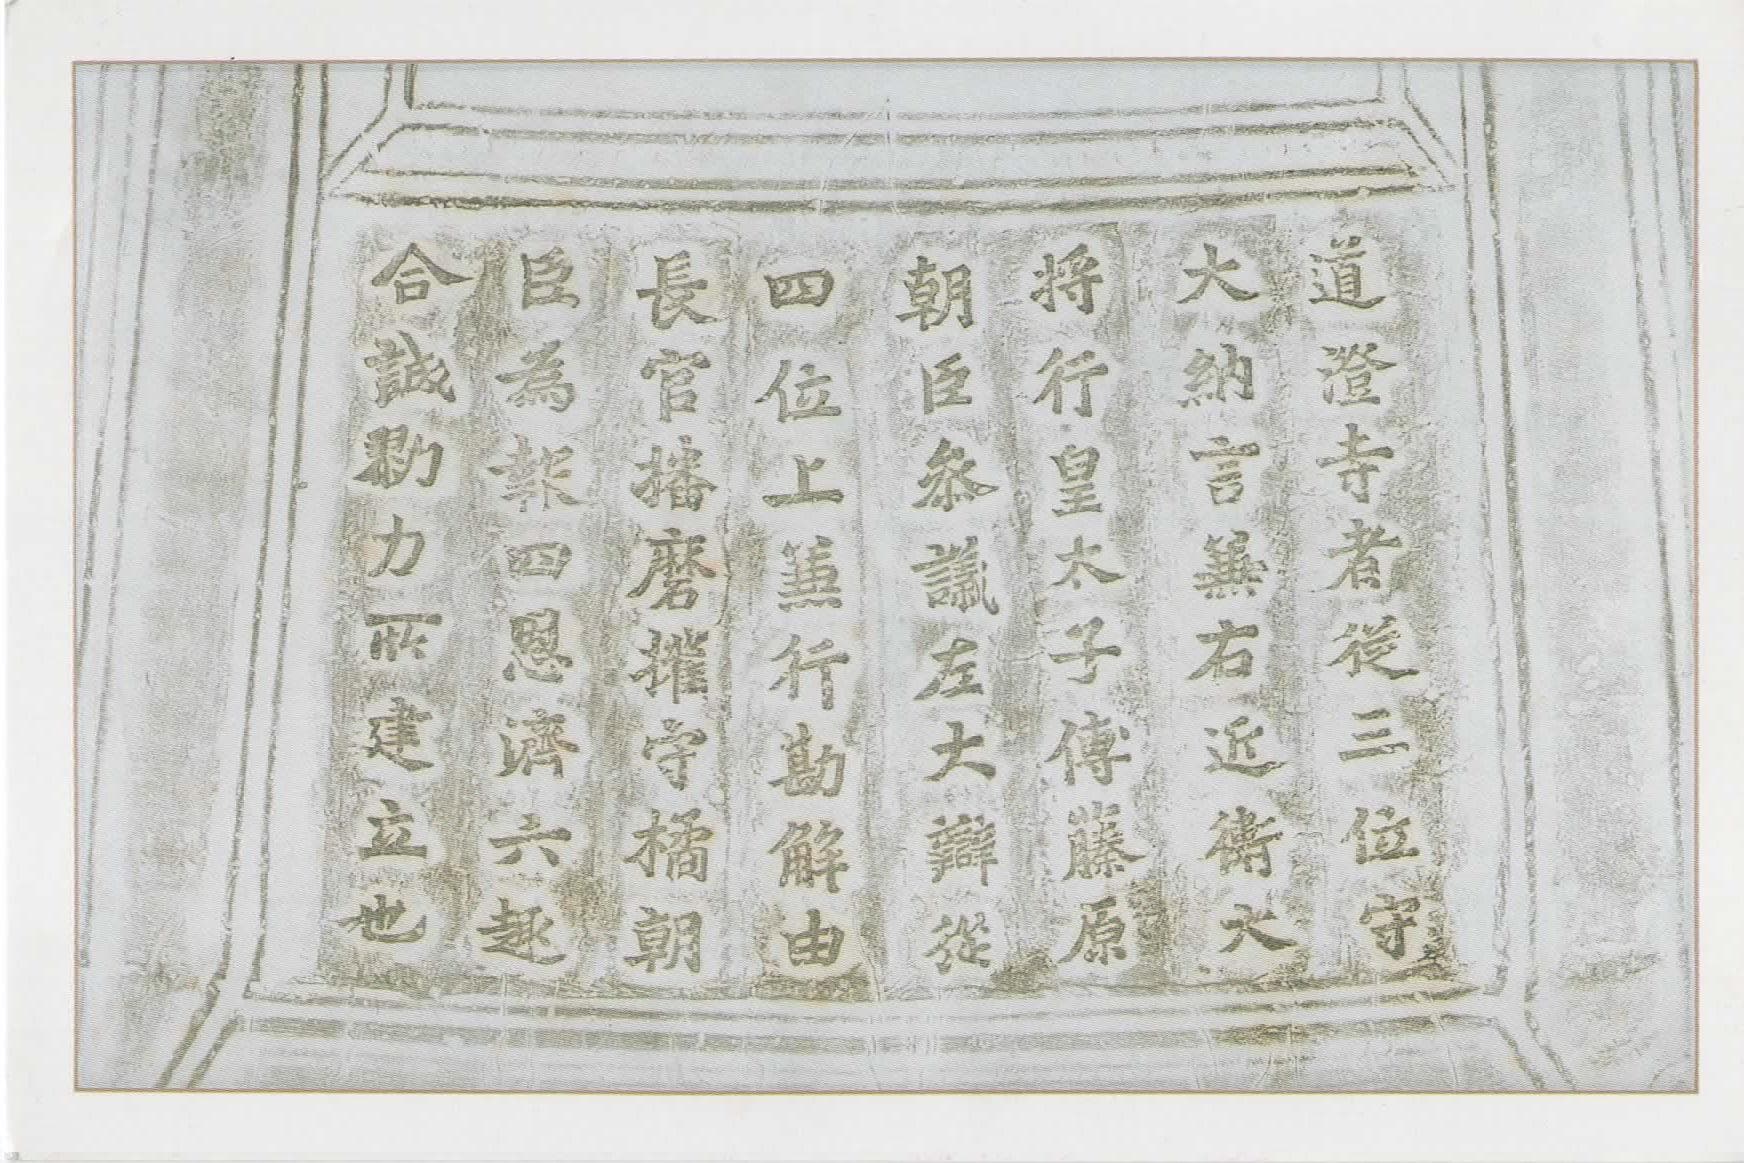 道澄寺者從三位守
大納言兼右近衛大
將行皇太子傅藤原
朝臣叅議左大辯從
四位上兼行勘解由
長官播磨權守橘朝
臣為報四恩濟六趣
合誠勠力所建立也